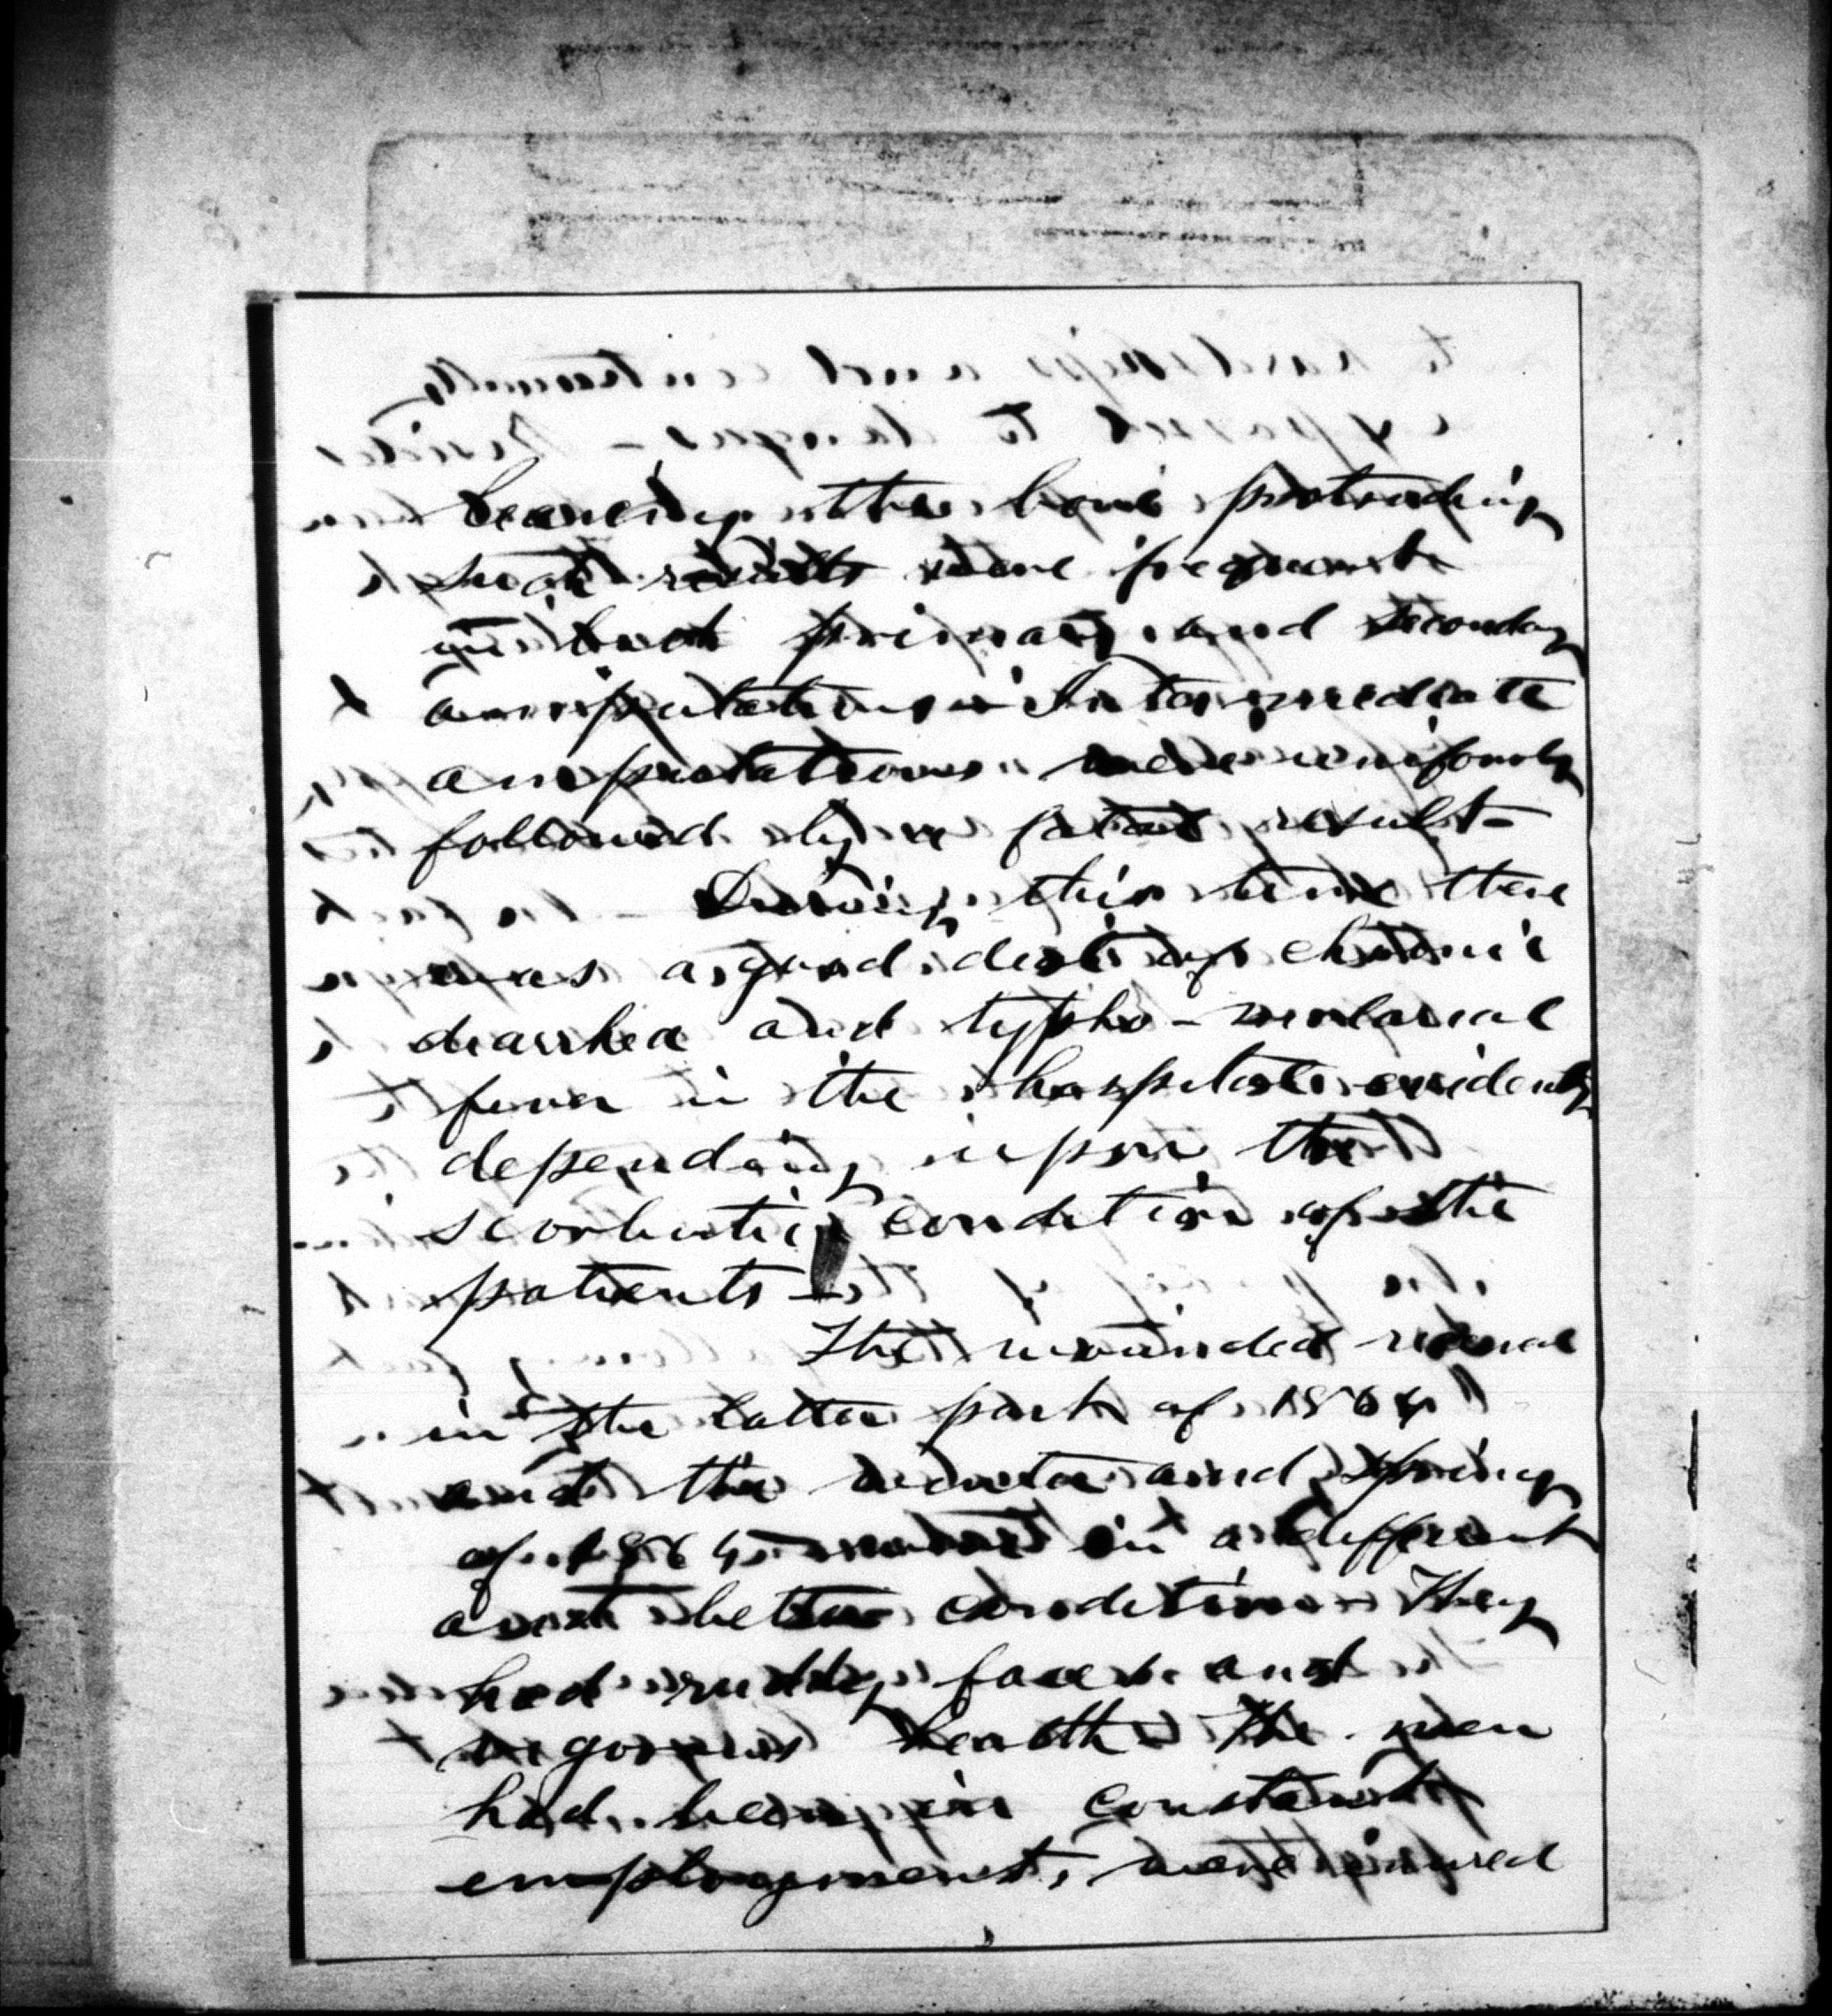 leaving the bone protruding
such results were frequent
in both primary and secondary
amputations - Intermediate
amputations were uniformly
followed by a fatal result -
During this time there
was a good deal of chronic
diarrhea and typho-malarial
fever in the hospitals evidently
depending upon the
scorbutic condition of the
patients -
The wounded received
in the latter part of 1864
and the winter and spring
of 1865 were in a different
and better condition - They
had ruddy faces and
vigorous health - The men
had been in constant
employment, were inured